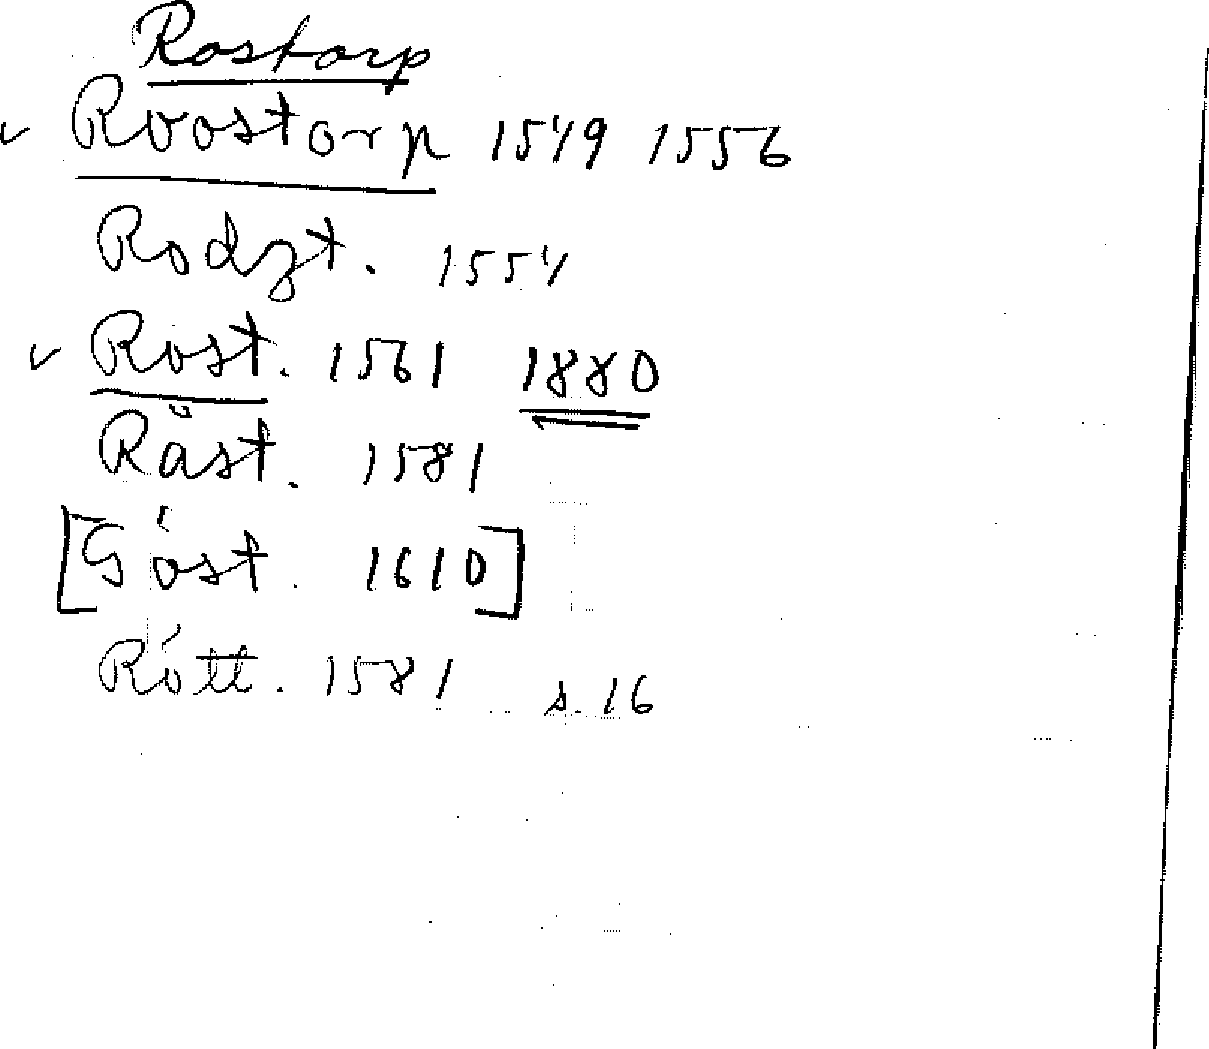 Rostorp
✓ Roostorp 1549 1556
Rodzt. 1554
✓ Rost. 1561 1880
Råst. 1581
[Góst. 1610]
Rótt. 1581 s. 16